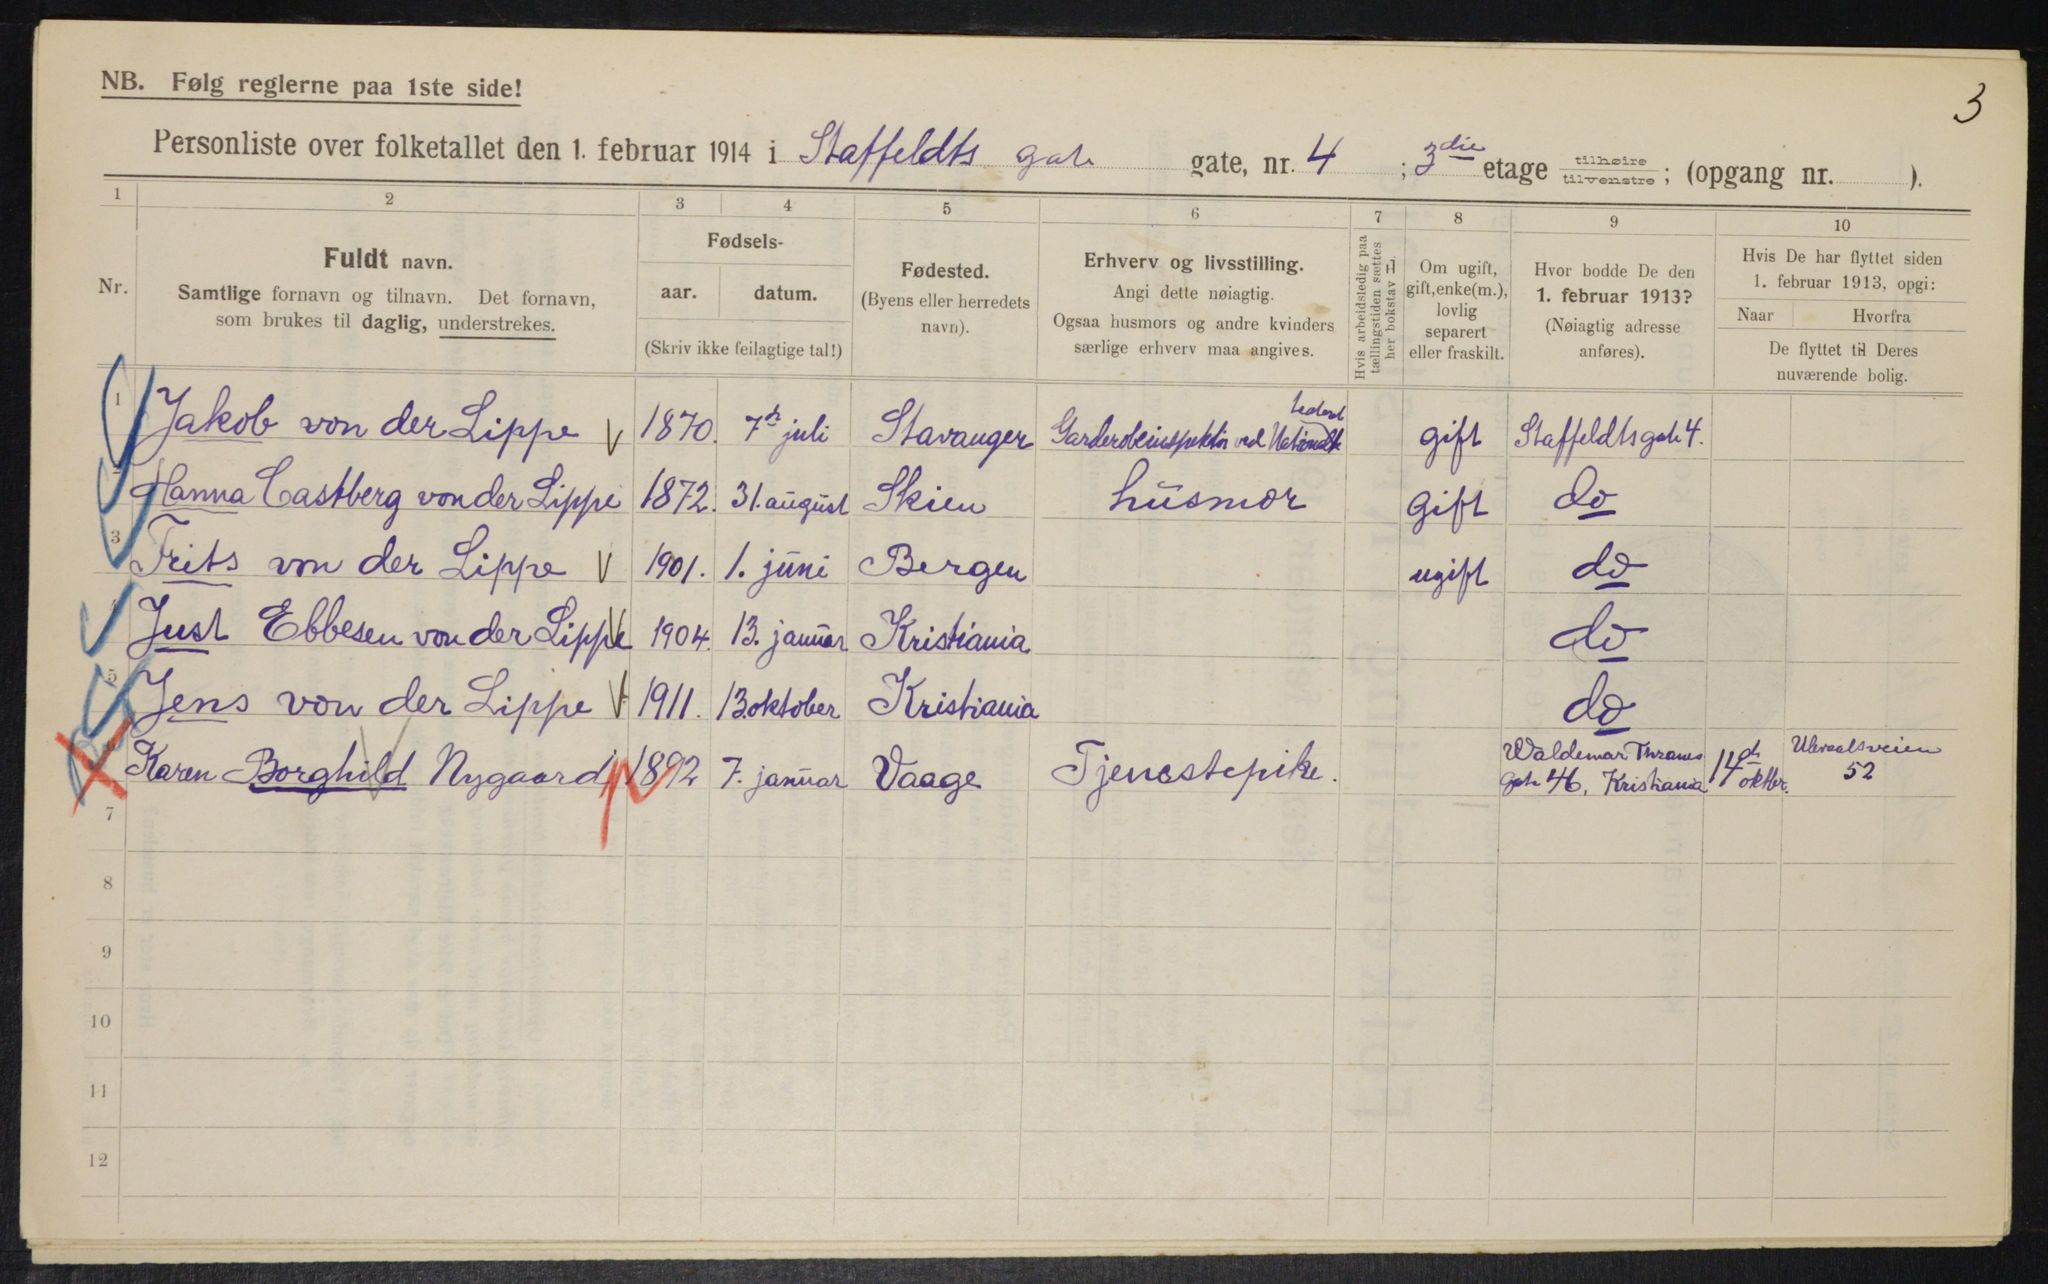 3
NB. Følg reglerne paa 1ste side!
Personliste over folketallet den 1. februar 1914 i Staffeldts gate gate, nr. 4 ; 3die etage tilhøire tilvenstre ; (opgang nr. ).
1 2 3 4 5 6 7 8 9 10
Nr.
Fuldt navn.
Samtlige fornavn og tilnavn. Det fornavn,
som brukes til daglig, understrekes.
Fødsels-
aar. datum.
(Skriv ikke feilagtige tal!)
Fødested.
(Byens eller herredets
navn).
Erhverv og livsstilling.
Angi dette nøiagtig.
Ogsaa husmors og andre kvinders
særlige erhverv maa angives.
Hvis arbeidsledig paa
tællingstiden sættes
her bokstav L
Om ugift,
gift, enke(m.),
lovlig
separert
eller fraskilt.
Hvor bodde De den
1. februar 1913?
(Nøiagtig adresse
anføres).
Hvis De har flyttet siden
1. februar 1913, opgi:
Naar Hvorfra
De flyttet til Deres
nuværende bolig.
1 Jakob von der Lippe 1870. 7de juli Stavanger Garderobeinspektør ved gift Staffeldts gate 4.
2 Hanna Castberg von der Lippe 1872. 31. august Skien husmor gift do
3 Frits von der Lippe 1901. 1. juni Bergen ugift do
4 Just Ebbesen von der Lippe 1904. 13. januar Kristiania do
5 Jens von der Lippe 1911. 13 oktober Kristiania do
6 Karen Borghild Nygaard 1892 7. januar Vaage Tjenestepike. Waldemar Thranes gate 46, Kristiania 14de oktbr. Ullevaalsveien 52
7
8
9
10
11
12